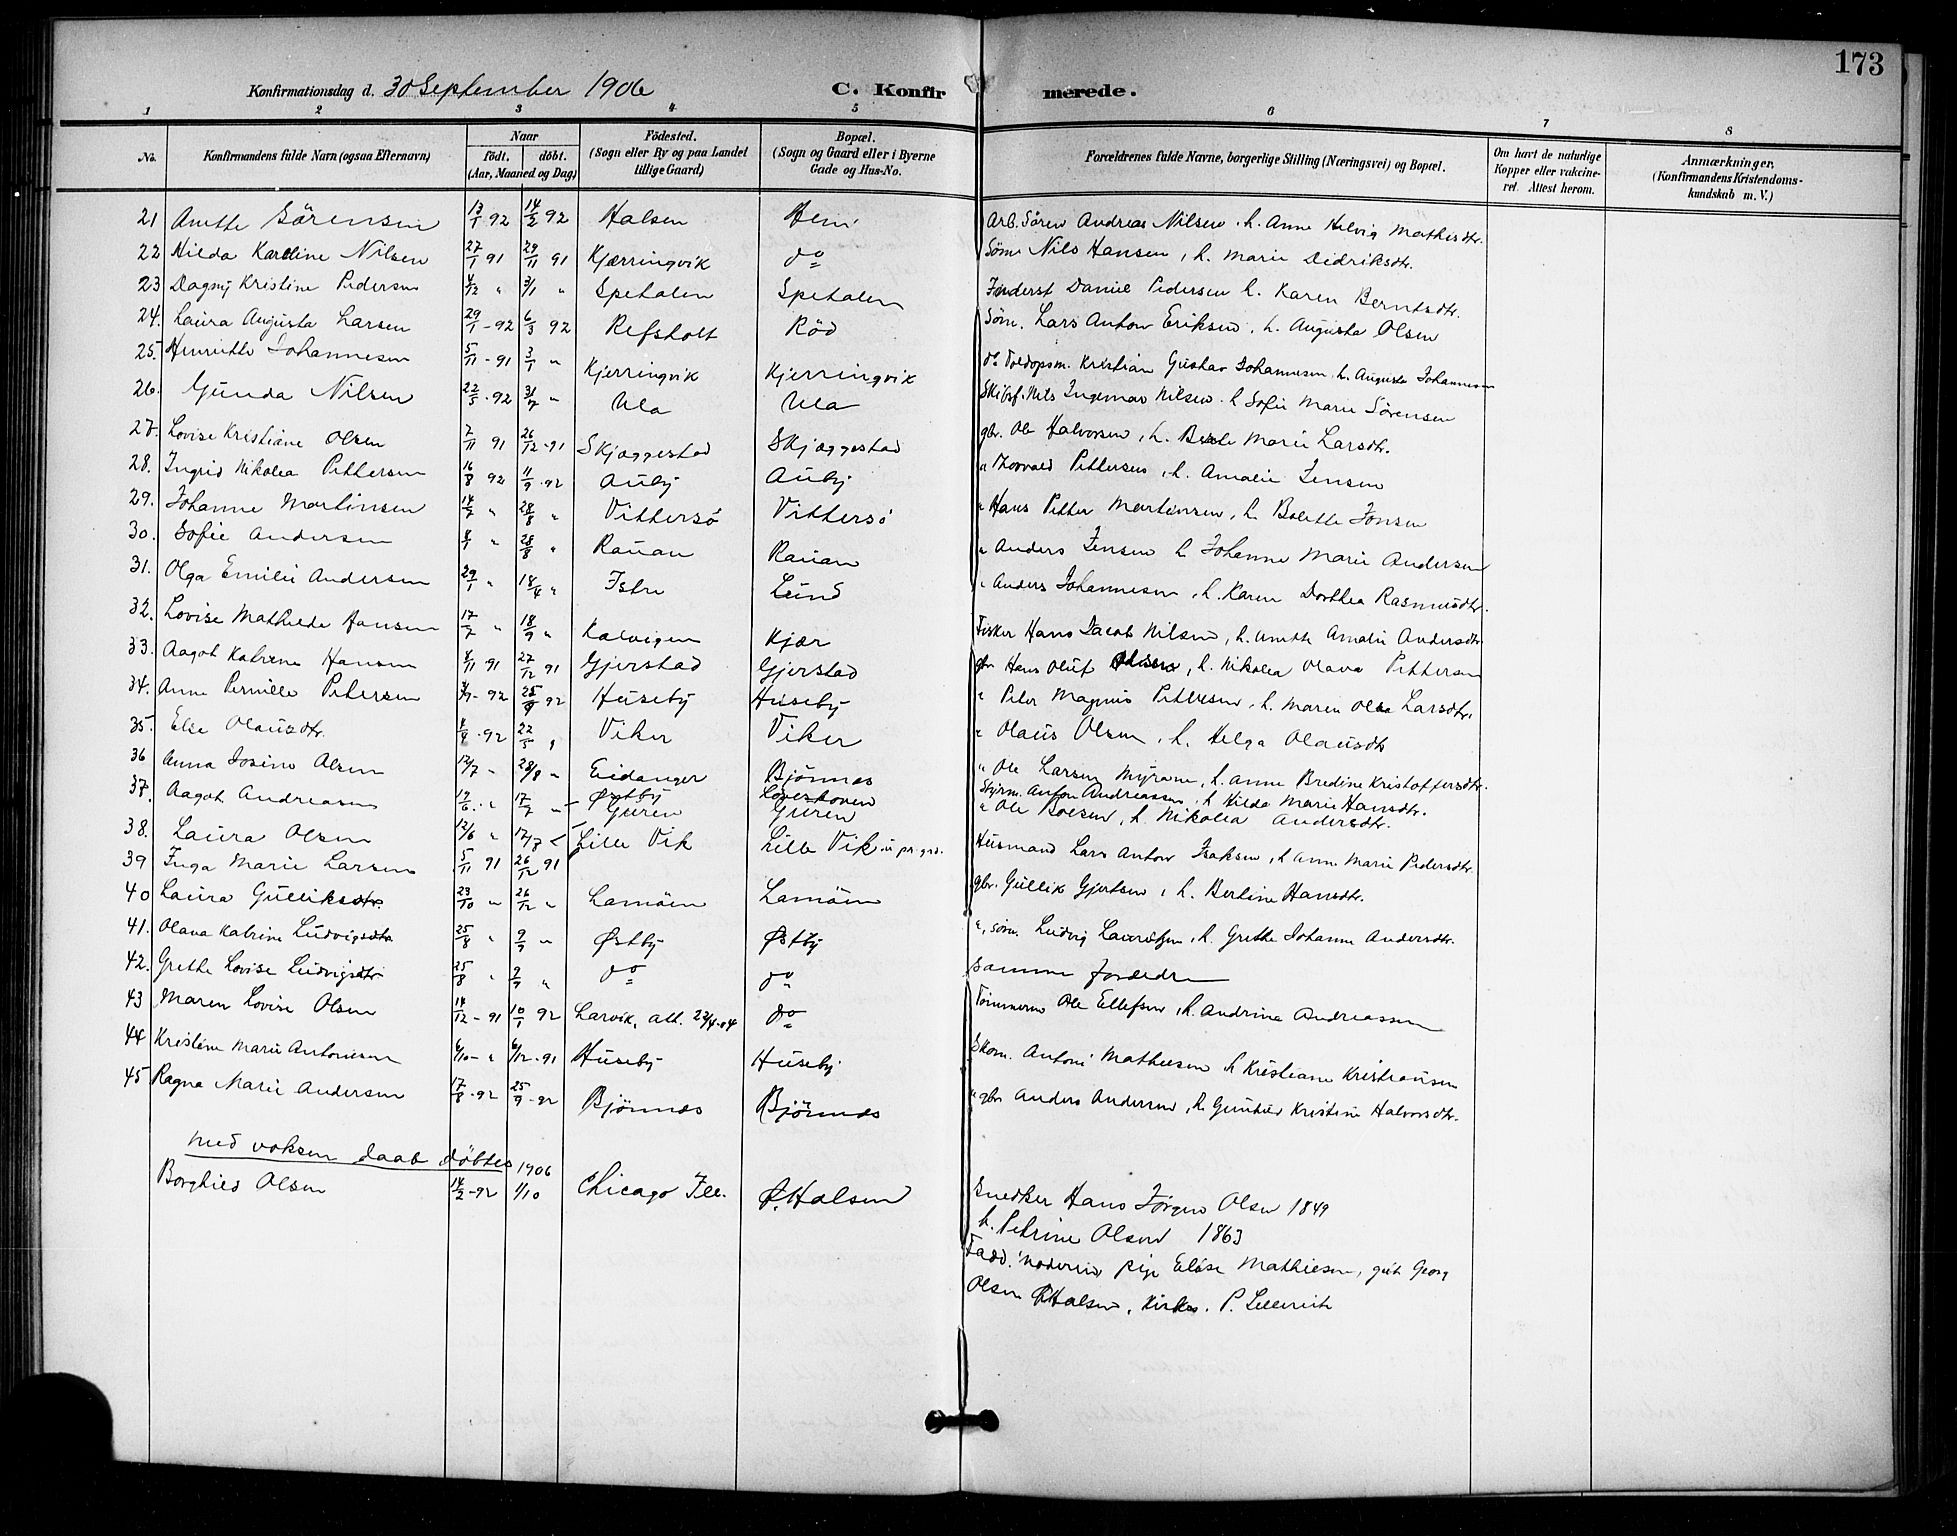 173
Konfirmationsdag d. 30 September 1906 C. Konfirmerede.
1 2 3 4 5 6 7 8
No. Konfirmandens fulde Navn (ogsaa Efternavn) Naar födt. döbt. (Aar, Maaned og Dag) Födested. (Sogn eller By og paa Landet tillige Gaard) Bopæl. (Sogn og Gaard eller i Byerne Gade og Hus-No. Forældrenes fulde Navne, borgerlige Stilling (Næringsvei) og Bopæl. Om havt de naturlige Kopper eller vakcineret. Attest herom. Anmærkninger. (Konfirmandens Kristendomskundskab m. V.)
21 Anette Sörensen 13/1 92 14/2 92 Halsen Hem Arb. Sören Andreas Nilsen, h. Anne Helvig Mathisdtr.
22 Hilda Karoline Nilsen 27/1 91 29/11 91 Kjærringvik do Söm Nils Hansen, h. Marie Didriksdtr.
23 Dagny Kristine Pedersen 4/12 " 3/1 " Spetalen Spetalen Daniel Pedersen h. Karen Berntsdtr.
24. Laura Augusta Larsen 29/1 - 92 6/3 92 Refsholt Röd Söm. Lars Anton Eriksen, h. Augusta Olsen
25. Henriette Johannesen 5/11 - 91 3/1 " Kjerringvik Kjerringvik Toldopsm. Kristian Gustav Johannesen, h. Augusta Johannesen
26. Gunda Nilsen 22/5 - 92 31/7 " Ula Ula Skibsf. Nils Ingemar Nilsen. h Sofie Marie Sörensen
27. Lovise Kristiane Olsen 7/11 91 26/12 - 91 Skjæggestad Skjæggestad gbr. Ole Halvorsen, h. Berte Marie Larsdtr.
28. Ingrid Nikolea Pettersen 16/8 92 11/9 - 92 Auby Auby " Thorvald Pettersen, h. Amalie Jensen
29. Johanne Martinsen 14/7 " 28/8 " Vittersö Vittersö " Hans Petter Martinsen, h. Bolette Jonsen
30. Sofie Andersen 8/1 " 28/8 " Rauan Rauan " Anders Jensen h Johanne Marie Andersen
31. Olga Emilie Andersen 29/1 " 18/4 " Istre Lund " Anders Johannesen, h. Karen Dorthea Rasmusdtr.
32. Lovise Mathilde Hansen 17/7 " 18/9 " Kalvigen Kjær Fisker Hans Jacob Nilsen, h. Anette Amalie Andersdtr.
33. Aagot Katrine Hansen 8/11 91 27/12 91 Gjerstad Gjerstad gbr Hans Oluf Olsen, h. Nikolea Olava Pettersen
34. Anne Pernille Petersen 92 25/9 92 Huseby Huseby " Peter Magnus Pettersen, h. Maren Olea Larsdtr.
35. Else Olausdtr. 4/4 - 92 22/5 " Viker Viker " Olaus Olsen, h. Helga Olausdtr
36 Anna Josine Olsen 12/7 " 28/8 " Eidanger Bjönnes " Ole Larsen Myrane, h. Anne Bredine Kristoffersdtr.
37. Aagot Andreasen 19/6 " 17/7 " Östby Styrm. Anton Andreassen, h Hilda Marie Hansdtr.
38. Laura Olsen 12/6 " 17/7 Guren Guren " Ole Boesen, h. Nikolea Andersdtr.
39 Inga Marie Larsen 5/11 91 26/12 91 Lille Vik Lille Vik Husmand Lars Anton Isaksen, h Anne Marie Pedersdtr.
40 Laura Gulliksdtr. 23/10 " 26/12 " Lamöen Lamöen gbr. Gullik Gjertsen, h. Bertine Hansdtr.
41. Olava Katrine Ludvigsdtr 25/8 " 9/9 " Östby Östby ", söm. Ludvig Lauritsen, h. Grethe Johanne Andersdtr.
42. Grethe Lovise Ludvigsdtr 25/8 " 9/9 " do do samme forældre
43 Maren Lovise Olsen 14/12 - 91 10/1 92 Larvik, att. 22/4-04 do Tömmerm Ole Ellefsen, h. Andrine Andreassen
44 Kristine Marie Antonisen 6/10 - " 6/12 - 91 Huseby Huseby Skom. Antoni Mathisen h Kristiane Kristiansen
45 Ragna Marie Andersen 17/8 - 92 25/9 - 92 Bjönnes Bjönnes " gbr Anders Andersen, h. Gunhild Kristine Halvorsdtr.
med voksen daab döbtes 1906
Borghild Olsen 14/2 - 92 1/10 Chicago Ill. Ö. Halsen Snedker Hans Jörgen Olsen 1849
h. Petrine Olsen 1863
Fadd. Moderen, pige Elise Mathisen, gut Georg
Olsen Ö Halsen, Kirkes. P. Lillevik